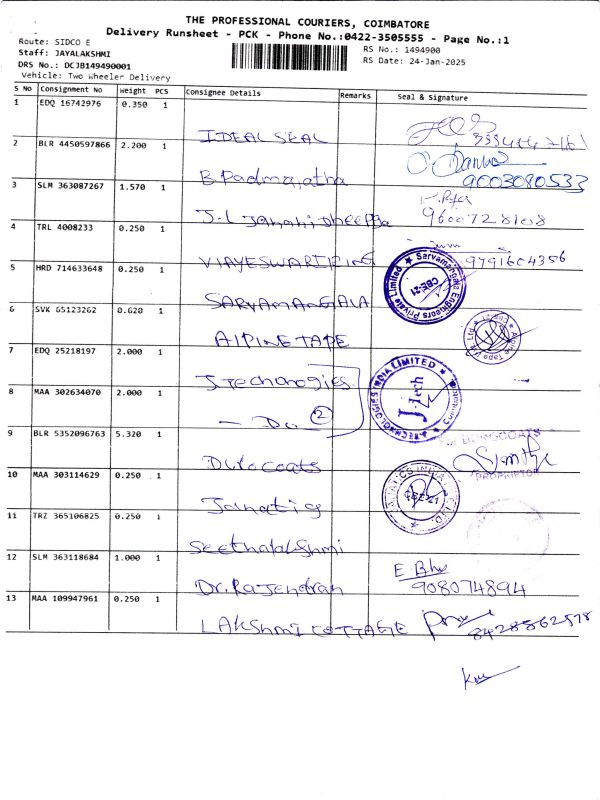 THE PROFESSIONAL COURIERS, COIMBATORE
Delivery Runsheet - PCK - Phone No.:0422-3505555 - Page No.:1
Route: SIDCO E
RS No.: 1494900
Staff: JAYALAKSHMI
RS Date: 24-Jan-2025
DRS No.: DCJB149490001
Vehicle: Two Wheeler Delivery
S No Consignment No Weight PCS Consignee Details Remarks Seal & Signature
1 EDQ 16742976 0.350 1
IDEAL SEAL
2 BLR 4450597866 2.200 1
B Padmanatha 9003080533
3 SLM 363087267 1.570 1
J.L Janani Dheepja 9600728108
4 TRL 4008233 0.250 1
VIJAYESWARI PING 9791604356
5 HRD 714633648 0.250 1
Sarvamangala Engineers Private Limited CBE-21
SARVAMANGALA
6 SVK 65123262 0.620 1
AlPINE TAPE
7 EDQ 25218197 2.000 1
J.Technologies
J-TECHNOLOGIES INDIA LIMITED J-Tech Coimbatore
8 MAA 302634070 2.000 1
- Do - 2
9 BLR 5352096763 5.320 1
Durocoats
PROPRIETOR
10 MAA 303114629 0.250 1
CBE-21
11 TRZ 365106825 0.250 1
Seethalakshmi
12 SLM 363118684 1.000 1
Dr.Rajendran 908074894
13 MAA 109947961 0.250 1
LAKshmi COTTAGE 8428562578